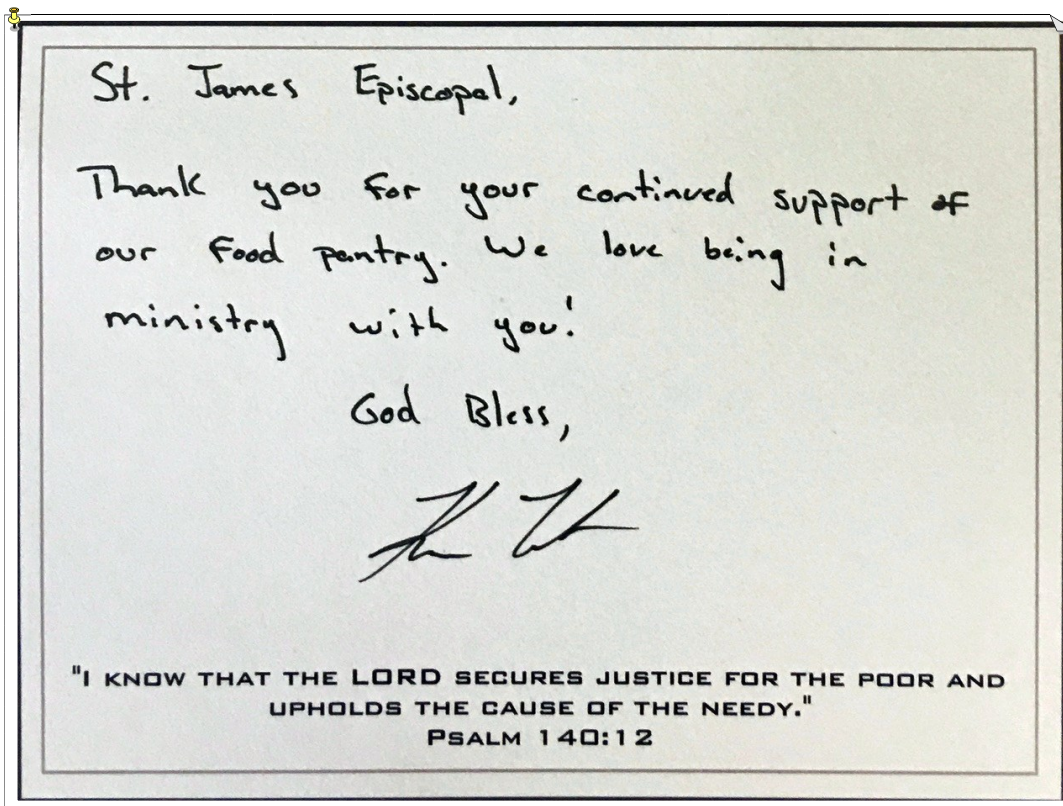 St. James Episcopal,
Thank you for your continued support of
our food pantry. We love being in
ministry with you!
God Bless,
"I KNOW THAT THE LORD SECURES JUSTICE FOR THE POOR AND
UPHOLDS THE CAUSE OF THE NEEDY."
PSALM 140:12